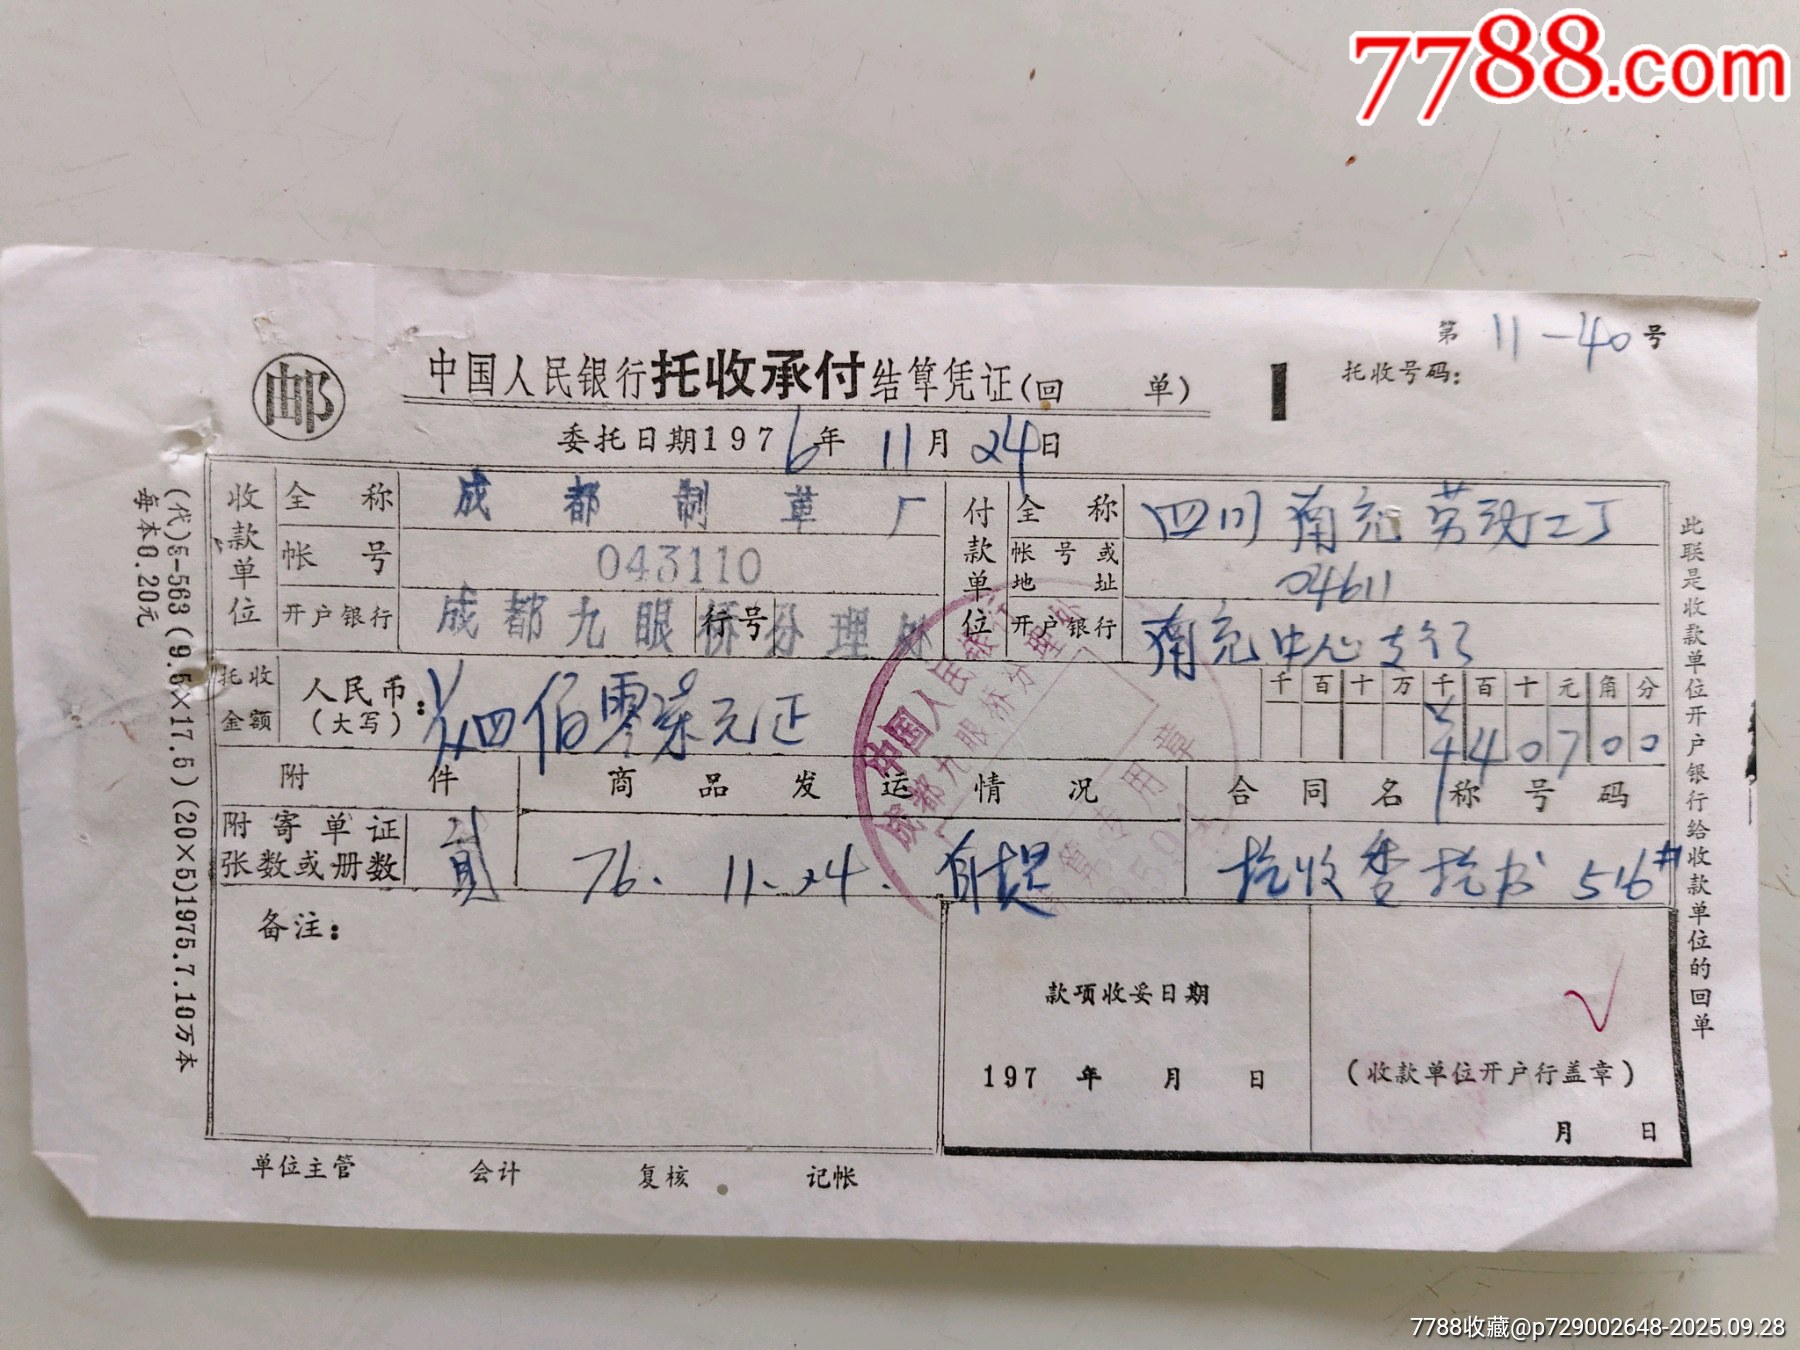 7788.com
第 11-40 号
托收号码：
邮
中国人民银行托收承付结算凭证(回 单)
委托日期1976年 11月 24日
收款单位
全 称 成都制革厂
帐 号 043110
开户银行 成都九眼桥分理处 行号
付款单位
全 称 四川南充劳动工厂
帐号或地址 04611
开户银行 南充中心支行
托收金额
人民币(大写)： 四佰零柒元正
千百十万千百十元角分
¥40700
附 件
商品发运情况
合同名称号码
附寄单证张数或册数
76. 11. 24. 自提
托收委托书 516#
备注：
款项收妥日期
197 年 月 日
(收款单位开户行盖章)
月 日
单位主管 会计 复核 记帐
此联是收款单位开户银行给收款单位的回单
(代)5-563(9.5×17.5)(20×5)1975.7.10万本
每本0.20元
中国人民银行
成都九眼桥分理处
7788收藏@p729002648-2025.09.28